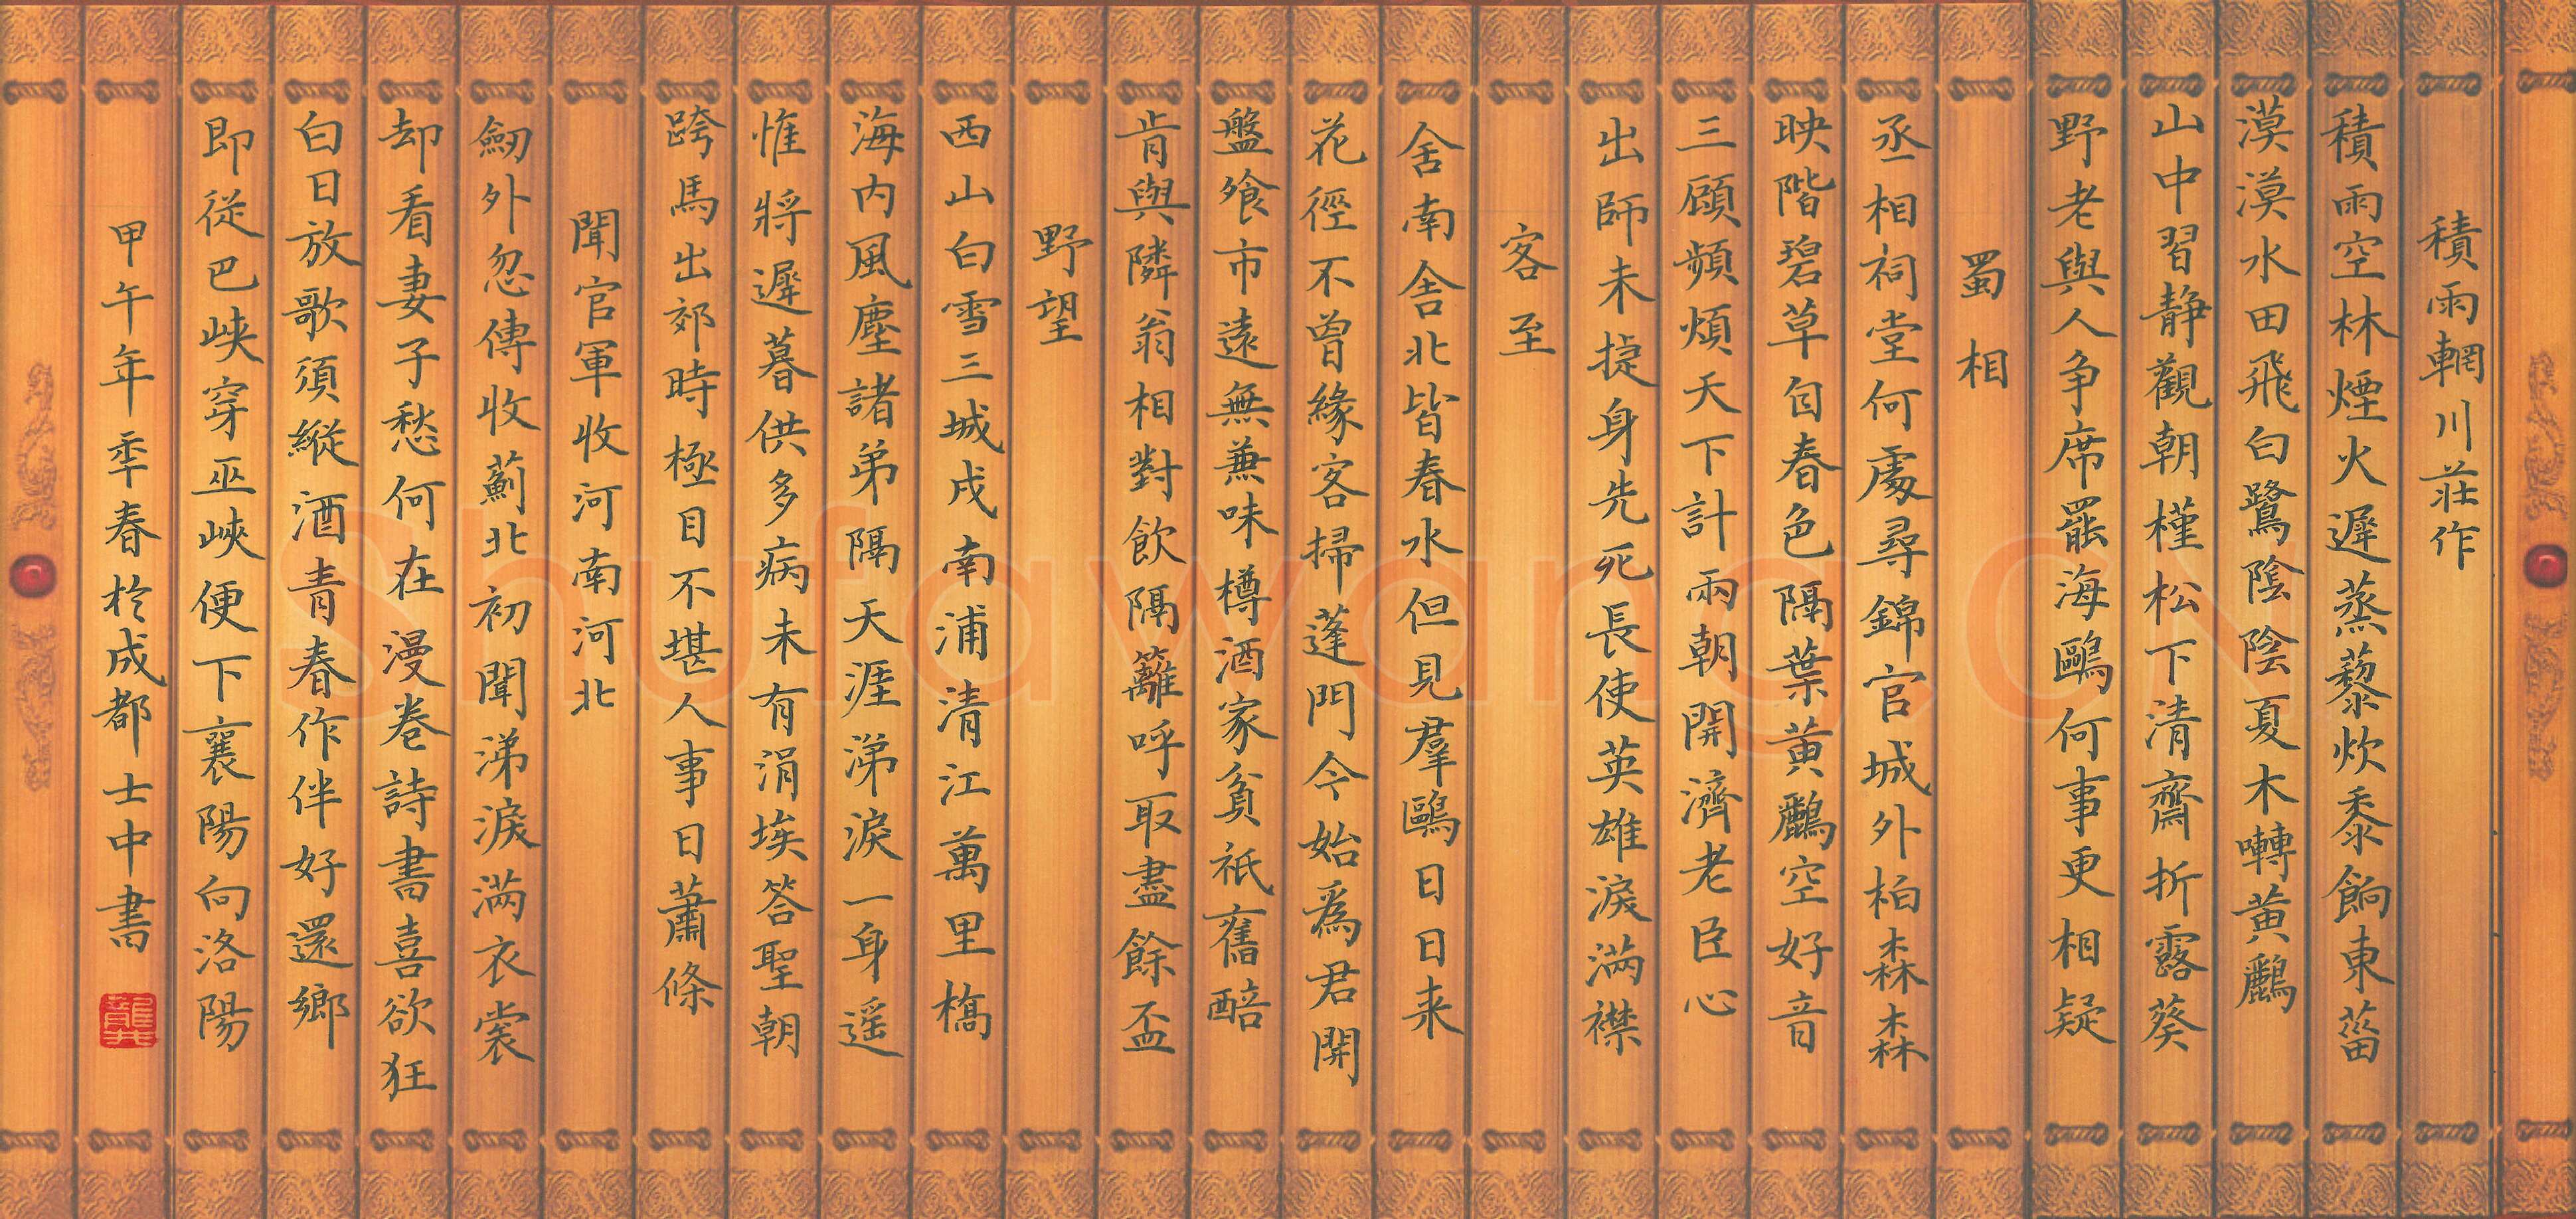 積雨輞川莊作
積雨空林煙火遲蒸藜炊黍餉東菑
漠漠水田飛白鷺陰陰夏木囀黃鸝
山中習静觀朝槿松下清齋折露葵
野老與人争席罷海鷗何事更相疑
蜀相
丞相祠堂何處尋錦官城外柏森森
映階碧草自春色隔葉黃鸝空好音
三顧頻煩天下計兩朝開濟老臣心
出師未捷身先死長使英雄淚滿襟
客至
舍南舍北皆春水但見羣鷗日日来
花徑不曾緣客掃蓬門今始爲君開
盤飧市遠無兼味樽酒家貧祇舊醅
肯與隣翁相對飲隔籬呼取盡餘盃
野望
西山白雪三城戍南浦清江萬里橋
海内風塵諸弟隔天涯涕淚一身遥
惟將遲暮供多病未有涓埃答聖朝
跨馬出郊時極目不堪人事日蕭條
聞官軍收河南河北
劒外忽傳收薊北初聞涕淚滿衣裳
却看妻子愁何在漫卷詩書喜欲狂
白日放歌須縱酒青春作伴好還鄉
即從巴峽穿巫峽便下襄陽向洛陽
甲午年季春於成都士中書
龔
Shufawang.CN